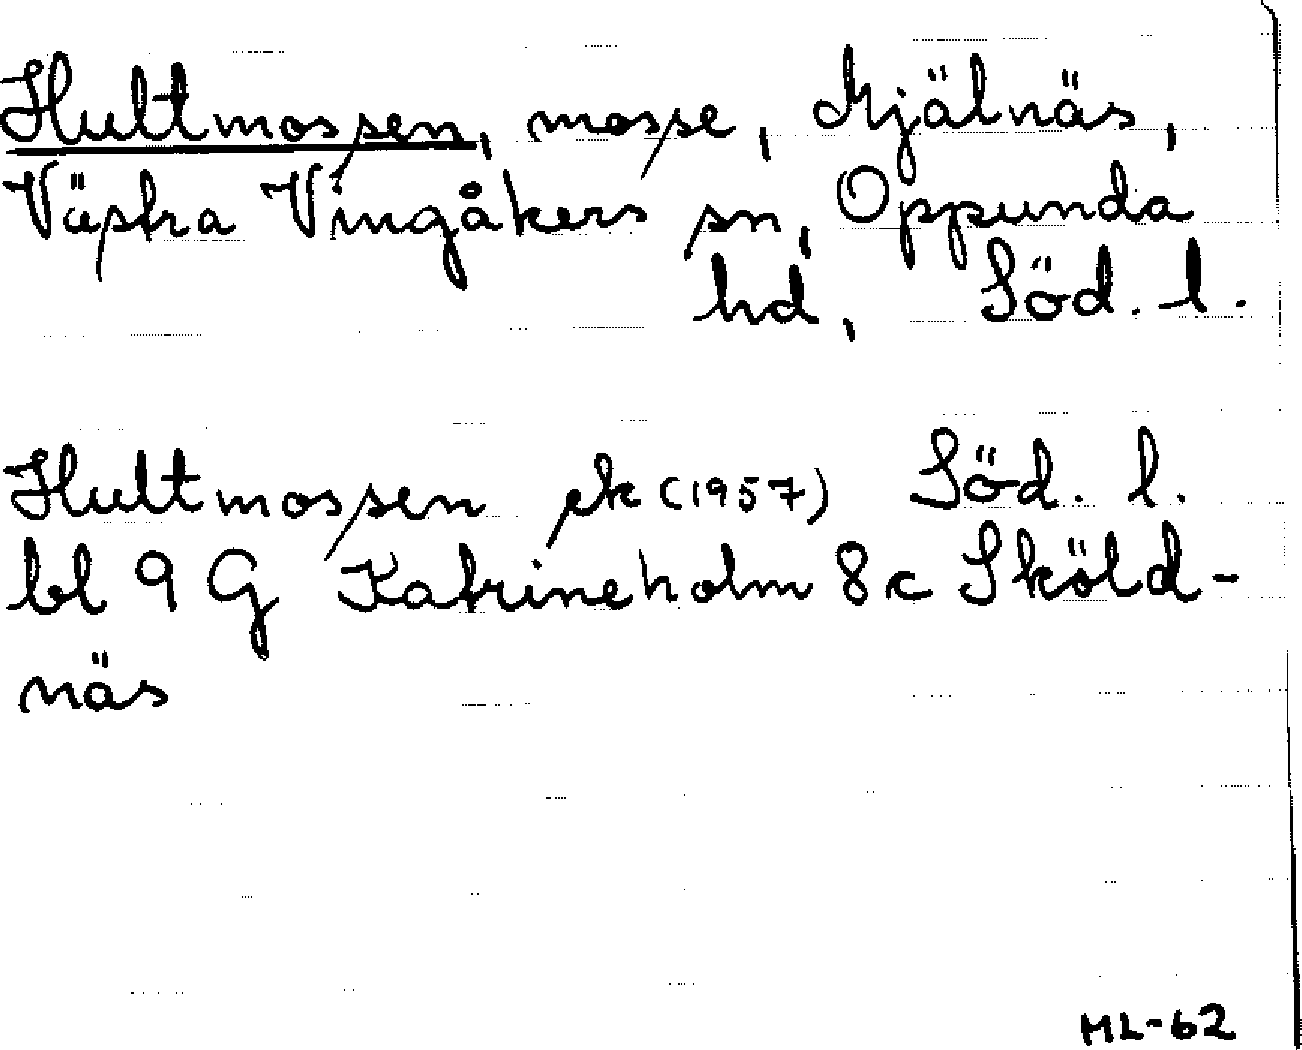 Hultmossen, mosse, Mjälnäs,
Västra Vingåkers sn, Oppunda
hd, Söd. l.
Hultmossen ek (1957) Söd. l.
bl 9 G Katrineholm 8 c Sköld-
näs
ML-62